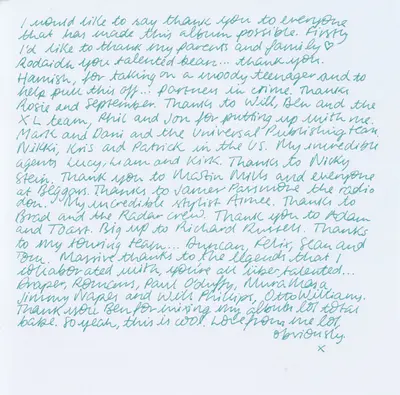 I would like to say thank you to everyone
that has made this album possible. Firstly
I'd like to thank my parents and family ♡
Rodaidh you talented bean... thank you.
Hamish, for taking on a moody teenager and to
help pull this off... partner in crime. Thanks
Rosie and September. Thanks to Will, Ben and the
XL team, Phil and Jon for putting up with me.
Mark and Dani and the Universal Publishing team
Nikki, Kris and Patrick in the US. My incredible
agents Lucy, Liam and Kirk. Thanks to Nicky
Stein. Thank you to Martin Mills and everyone
at Beggars. Thanks to James Passmore the radio
don. My incredible stylist Aimee. Thanks to
Brad and the Radar crew. Thank you to Adam
and Toast. Big up to Richard Russell. Thanks
to my touring team... Duncan, Felix, Sean and
Tom. Massive thanks to the legends that I
collaborated with, you're all uber talented...
Draper, Romans, Paul O'duffy, Mura Masa
Jimmy Napes and Will Phillips, Otto Williams.
Thank you Ben for mixing my album lol total
babe. So yeah, this is cool. Love from me lol
obviously.
x